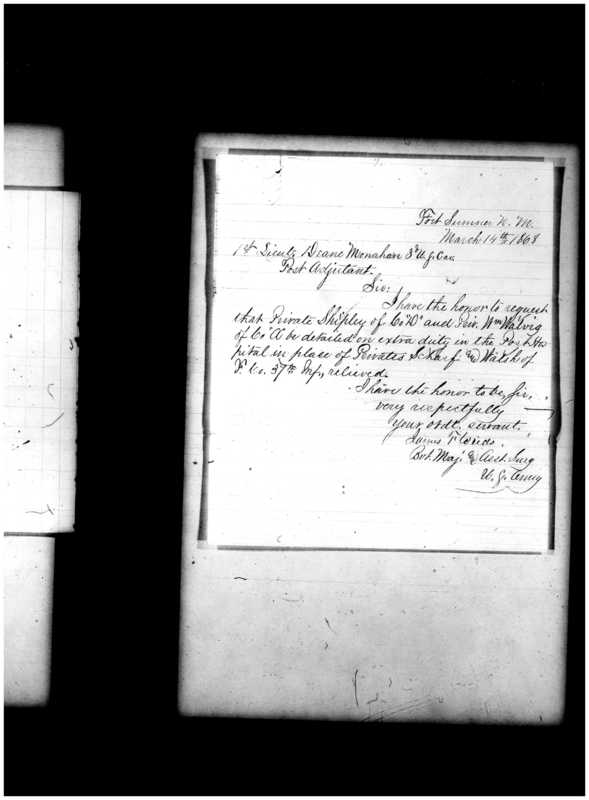 Fort Sumner N. M.
March 14th 1868
1st Lieut. Deane Monahan 3d U.S. Cav.
Post Adjutant.
Sir:
I have the honor to request
that Private Shipley of Co. "D" and Priv. Wm
of Co "A" be detailed on extra duty in the Post Hos
pital in place of Privates Scharf & Walsh of
F Co. 37th Inf., relieved.
I have the honor to be, Sir,
very respectfully
your obdt. servant.
James
Bvt. Maj. & Asst. Surg
U. S. Army